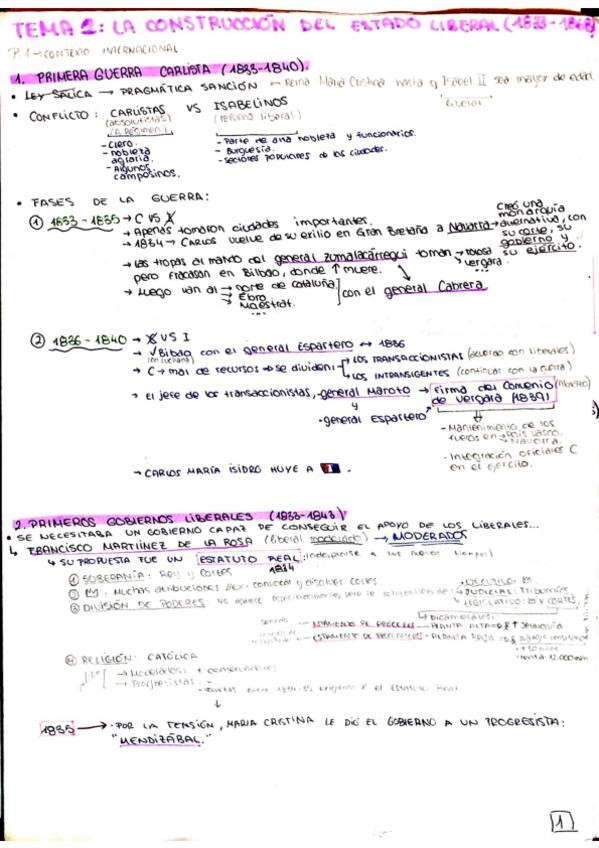 TEMA 2: LA CONSTRUCCIÓN DEL ESTADO LIBERAL (1833-1868)
P.1 → CONTEXTO INTERNACIONAL
1. PRIMERA GUERRA CARLISTA (1833-1840).
• LEY SÁLICA → PRAGMÁTICA SANCIÓN → Reina María Cristina hasta q Isabel II sea mayor de edad.
"liberal"
• CONFLICTO: CARLISTAS VS ISABELINOS
(absolutistas) (reforma liberal)
(A. RÉGIMEN)
- Clero.
- nobleza agraria.
- Algunos campesinos.
- Parte de alta nobleza y funcionarios.
- Burguesía.
- Sectores populares de las ciudades.
• FASES DE LA GUERRA:
① 1833 - 1835 → C VS I
→ Apenas tomaron ciudades importantes.
→ 1834 → Carlos vuelve de su exilio en Gran Bretaña a Navarra
Creó una monarquía alternativa, con su corte, su gobierno y su ejército.
→ Las tropas al mando del general Zumalacárregui toman → Tolosa
→ Vergara
pero fracasan en Bilbao, donde ↑ muere.
→ Luego van al → norte de Cataluña
→ Ebro
→ Maestrat.
con el general Cabrera
② 1836 - 1840 → C VS I
→ √ Bilbao con el general Espartero ↔ 1836
(en Luchana)
→ C → mal de recursos → se dividen: LOS TRANSACCIONISTAS (acuerdo con liberales)
LOS INTRANSIGENTES (continuar con la guerra)
→ el jefe de los transaccionistas, general Maroto → firma del Convenio de Vergara (1839) (Maroto)
y
· general Espartero
- Mantenimiento de los fueros en → País Vasco.
→ Navarra.
- Integración oficiales C en el ejército.
→ CARLOS MARÍA ISIDRO HUYE A
2. PRIMEROS GOBIERNOS LIBERALES (1833-1843)
• SE NECESITABA UN GOBIERNO CAPAZ DE CONSEGUIR EL APOYO DE LOS LIBERALES...
↳ FRANCISCO MARTÍNEZ DE LA ROSA (liberal moderado) → MODERADOS
↳ SU PROPUESTA FUE UN ESTATUTO REAL: (adaptarse a los nuevos tiempos)
1834
① SOBERANÍA: Rey y Cortes
② Muchas atribuciones Convocar y disolver cortes
③ DIVISIÓN DE PODERES No aparece
JUDICIAL: Tribunales
LEGISLATIVO: CORTES
↳ bicamerales:
ESTAMENTO DE PRÓCERES
ESTAMENTO DE PROCURADORES
④ RELIGIÓN: CATÓLICA
→ Moderados: + conservadores
→ Progresistas: -
↓
1835 → · POR LA TENSIÓN, MARIA CRISTINA LE DIO EL GOBIERNO A UN PROGRESISTA:
"MENDIZÁBAL."
1